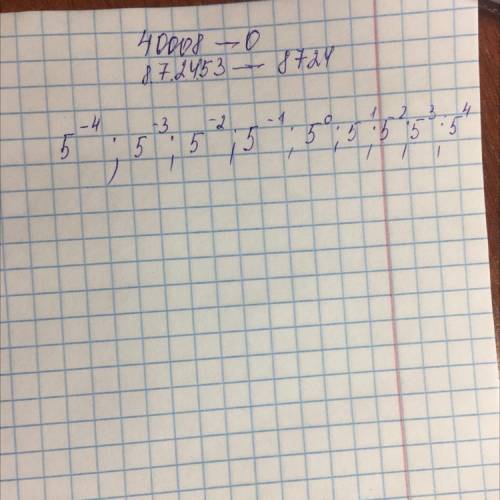 40008 — 0
87.2453 — 8724
5^-4 ; 5^-3 ; 5^-2 ; 5^-1 ; 5^0 ; 5^1 ; 5^2 ; 5^3 ; 5^4